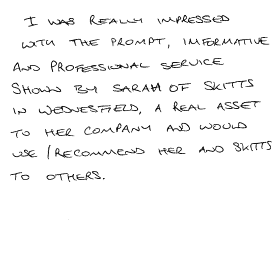 I WAS REALLY IMPRESSED
WITH THE PROMPT, INFORMATIVE
AND PROFESSIONAL SERVICE
SHOWN BY SARAH OF SKITTS
IN WEDNESFIELD, A REAL ASSET
TO HER COMPANY AND WOULD
USE/RECOMMEND HER AND SKITTS
TO OTHERS.